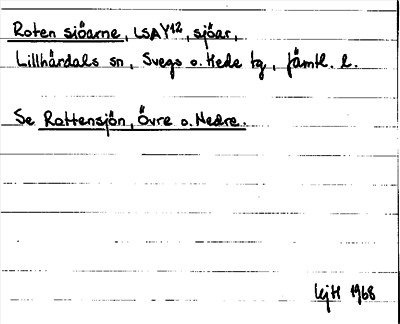 Roten sjöarne, LSA Y12, sjöar,
Lillhärdals sn, Svegs o. Hede tg, Jämtl. l.
Se Rottensjön, Övre o. Nedre.
KjH 1968